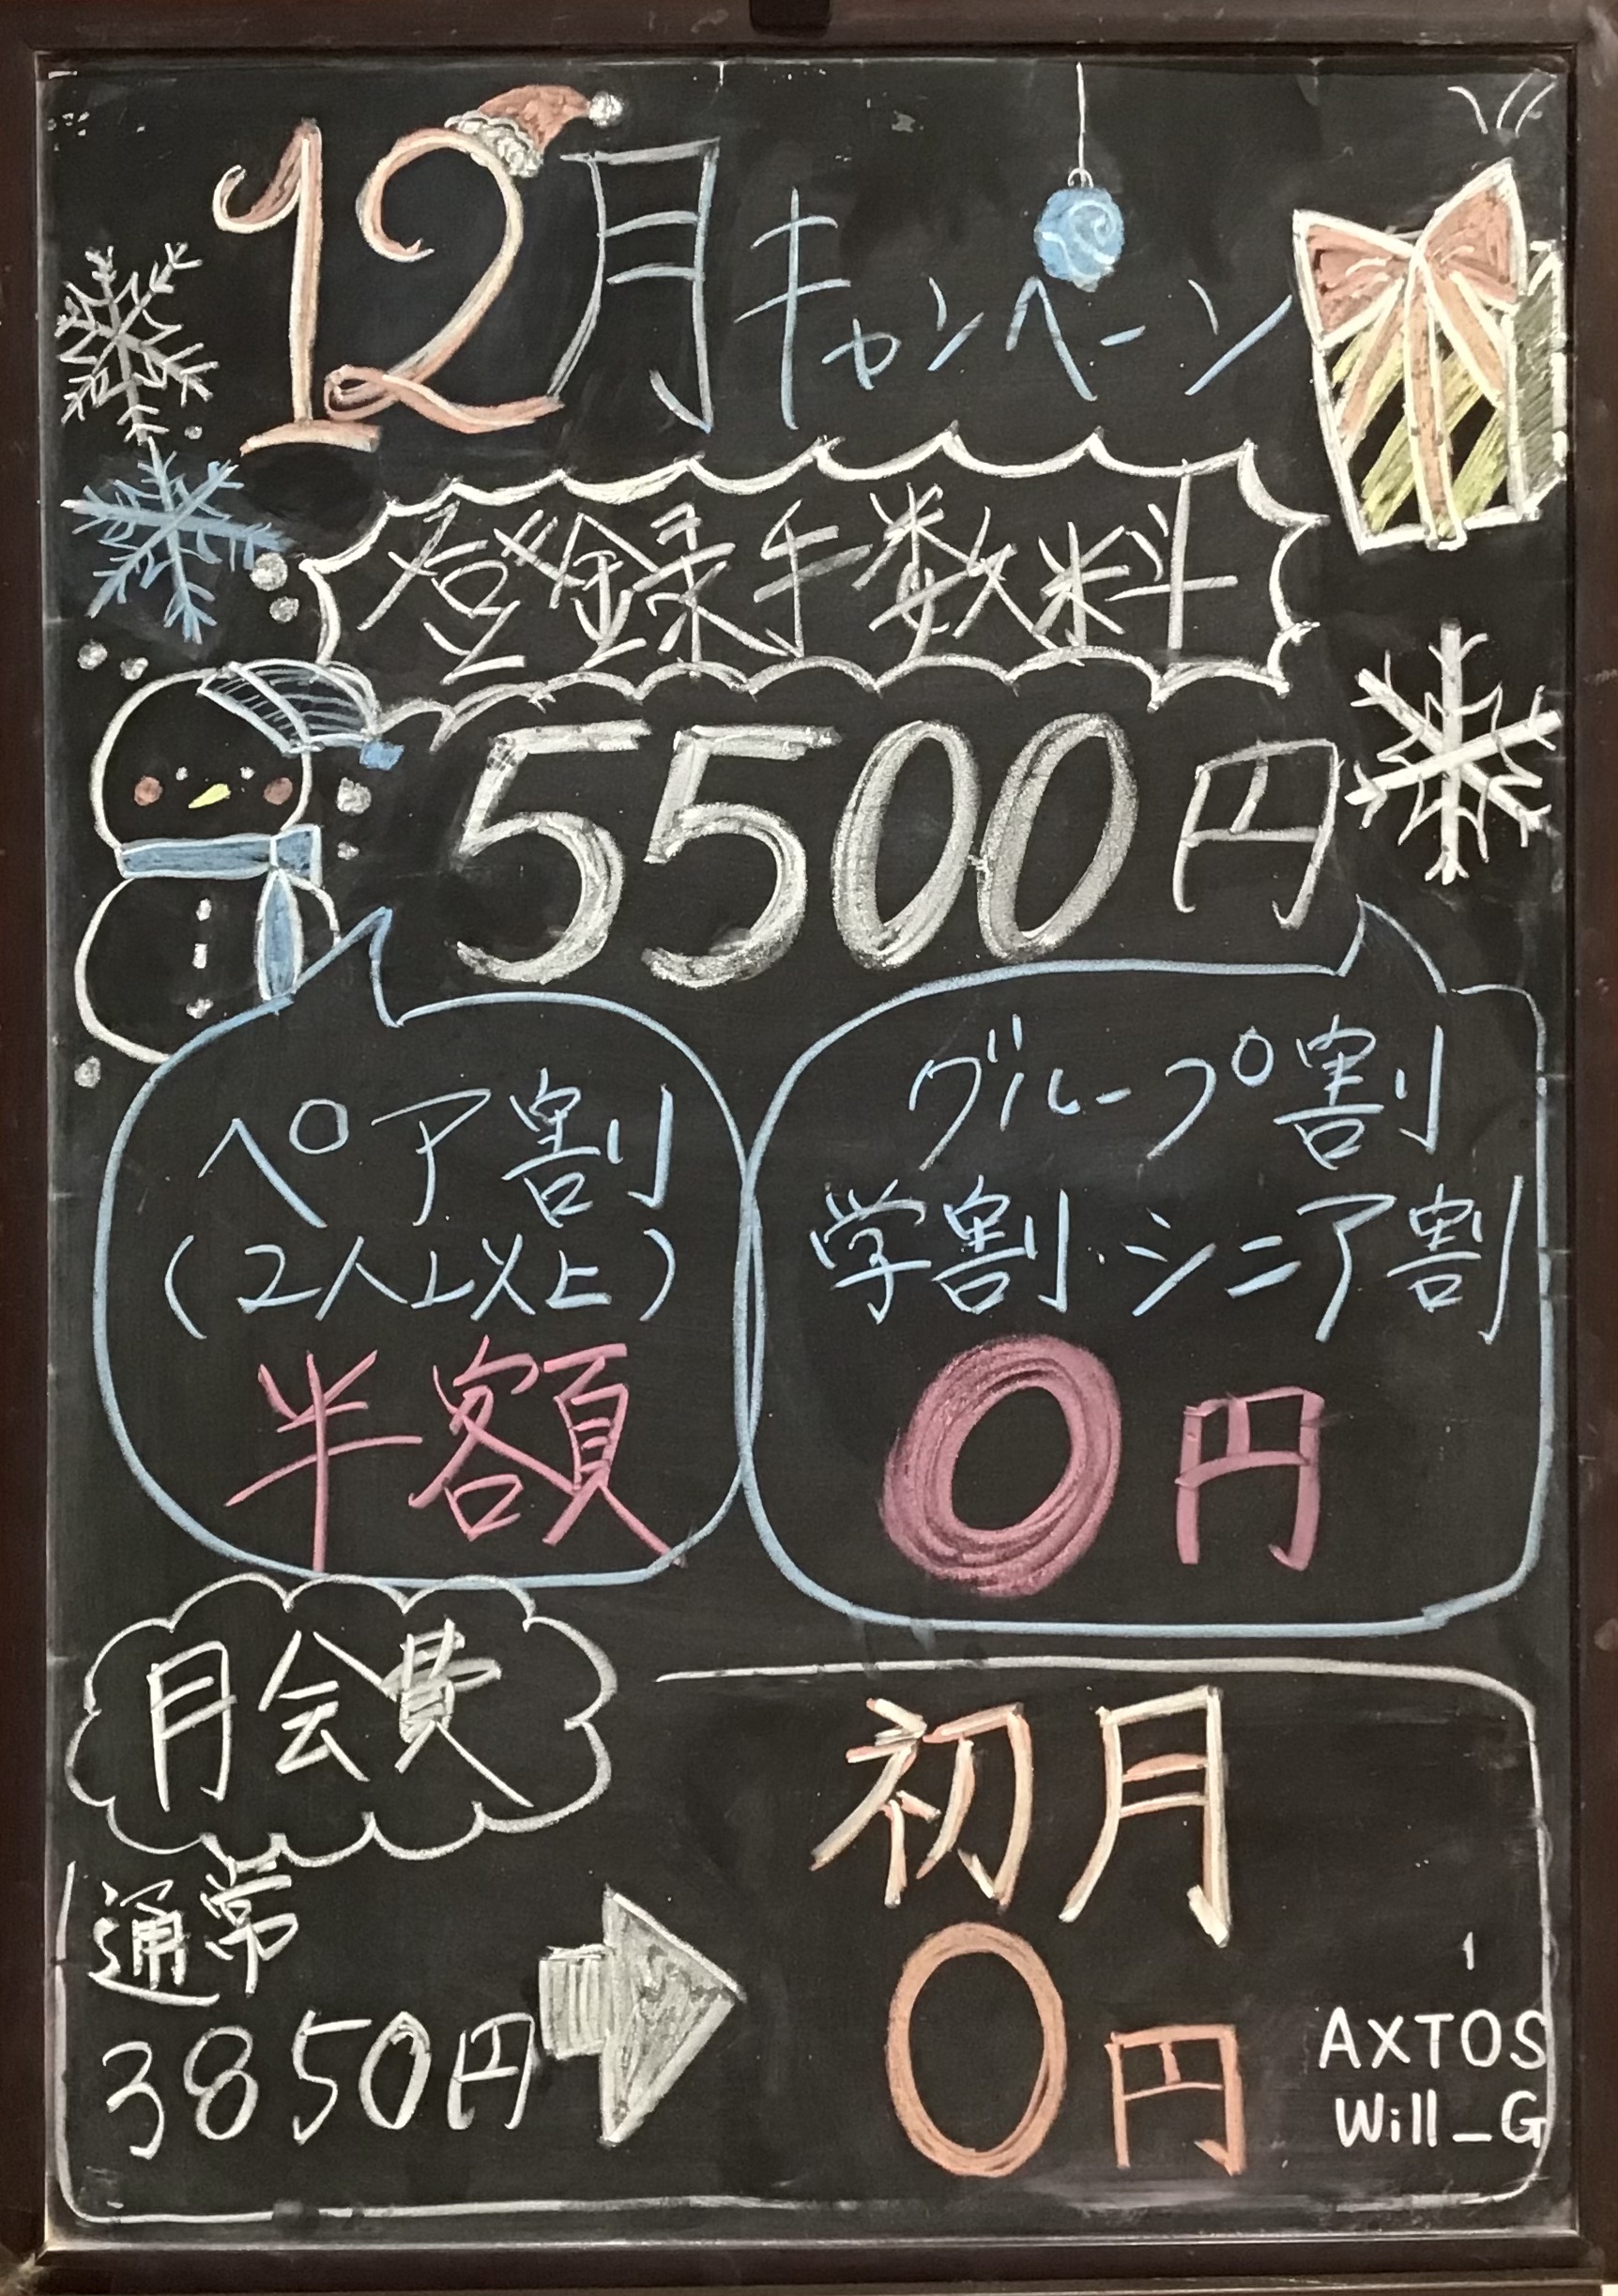 12月キャンペーン
登録手数料
5500円
ペア割
(2人以上)
半額
グループ割
学割・シニア割
0円
月会費
通常
3850円
初月
0円
AXTOS
Will_G